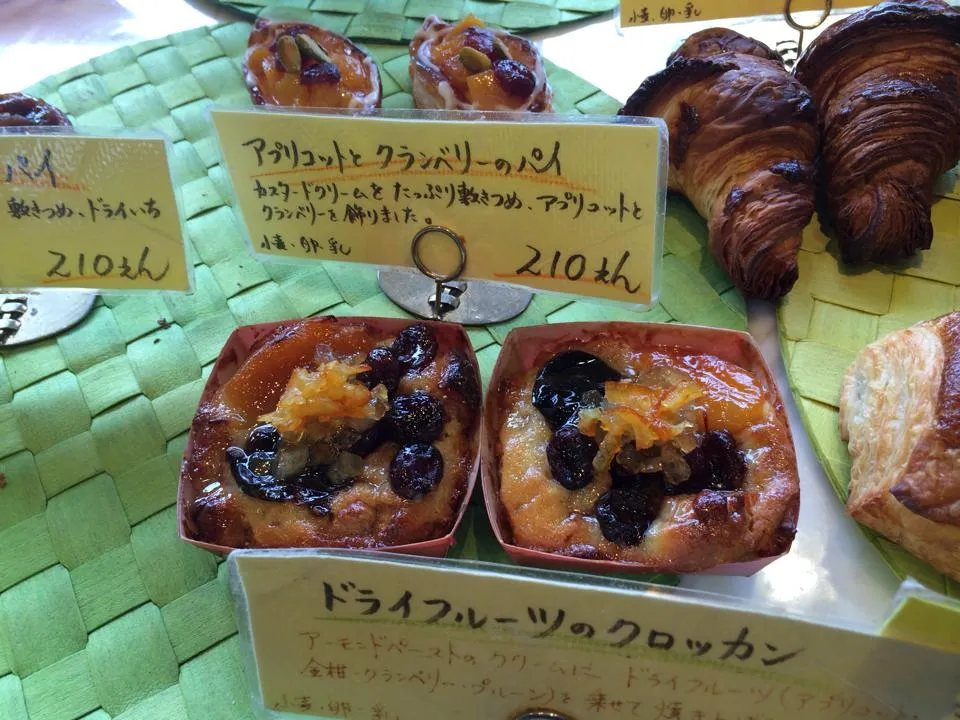 小麦・卵・乳
アプリコットと クランベリーのパイ
カスタードクリームを たっぷり敷きつめ、アプリコットと
クランベリーを飾りました。
小麦・卵・乳
210えん
パイ
敷きつめ、ドライいち
210えん
ドライフルーツのクロッカン
アーモンドペーストのクリームに ドライフルーツ(アプリコ
金柑・クランベリー・プルーン)を 乗せて 焼き
小麦・卵・乳